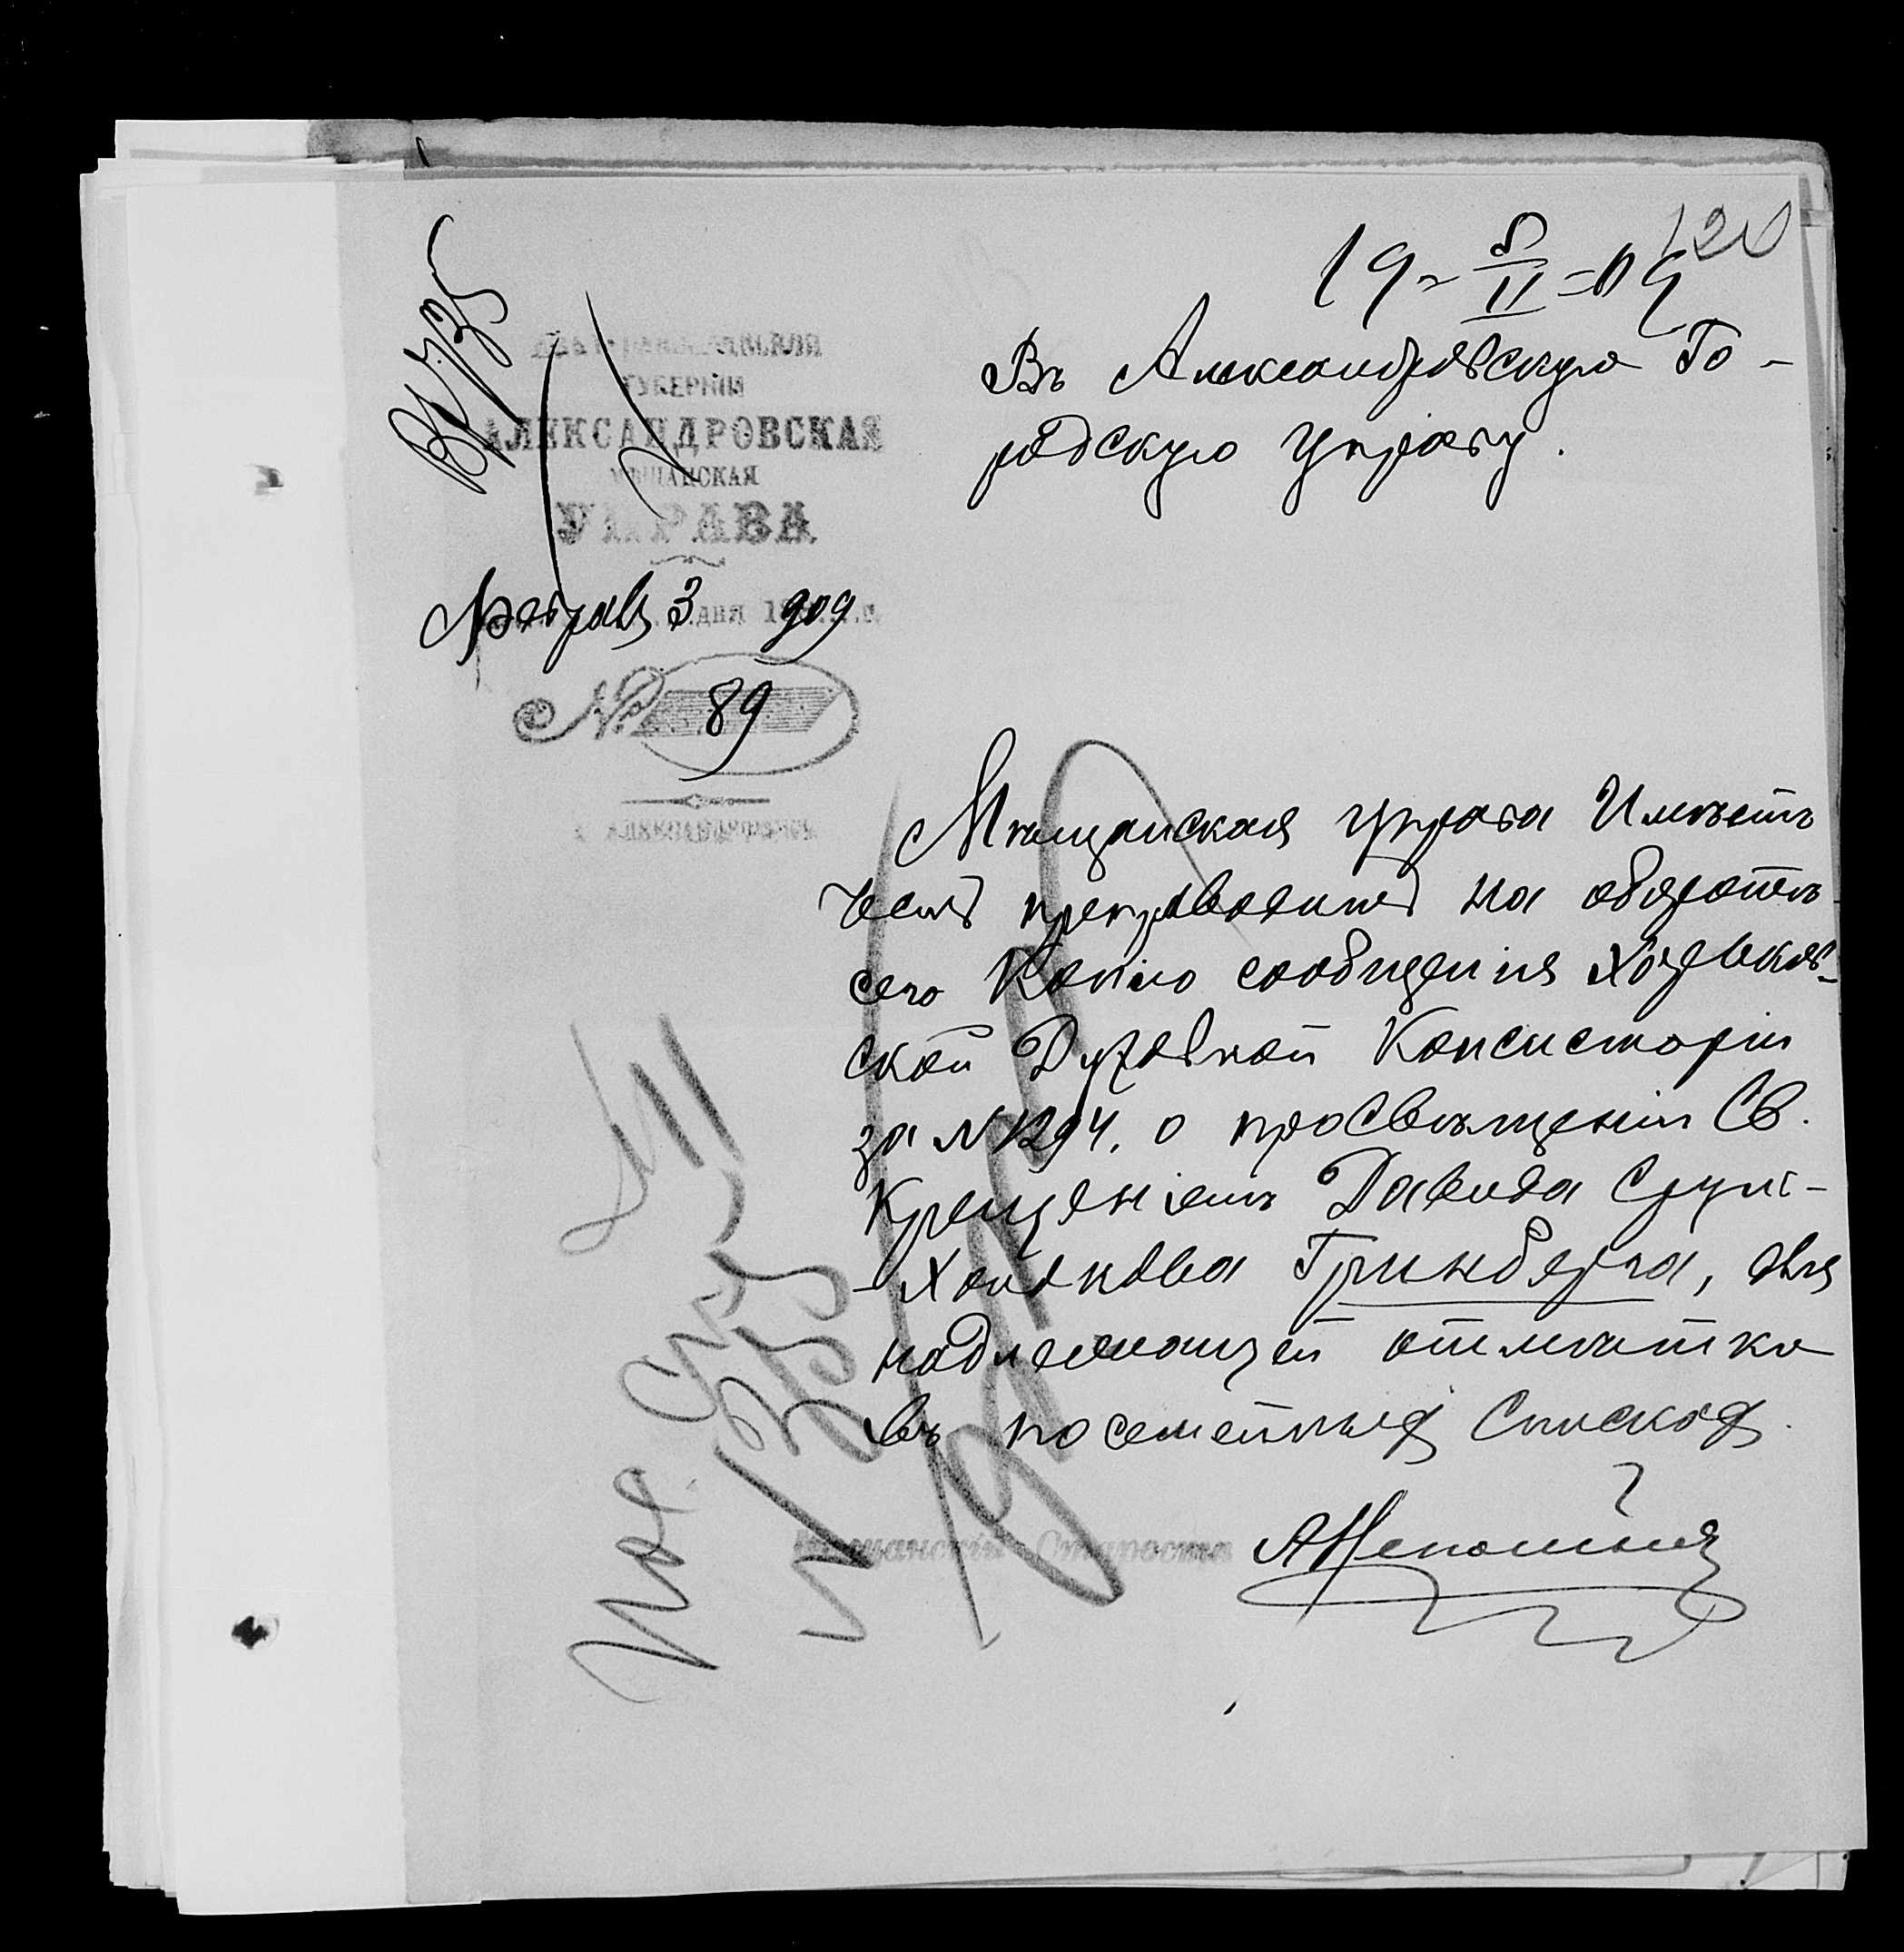 120
19 8/II 09
Въ Александровскую Го-
родскую Управу.
ЕКАТЕРИНОСЛАВСКОЙ
ГУБЕРНІИ
АЛЕКСАНДРОВСКАЯ
МѢЩАНСКАЯ
УПРАВА
Февраля 3 дня 1909 г.
№ 89
Г. АЛЕКСАНДРОВСКЪ
Мѣщанская управа имѣетъ
честь препроводить на оборотѣ
сего Копію сообщенія Харьков-
ской Духовной Консисторіи
за N 1294, о просвѣщеніи Св.
Крещеніемъ Давида Срул-
-Хаимова Гринберга, для
надлежащей отмѣтки
въ посемейныхъ спискахъ.
Мѣщанскій Староста